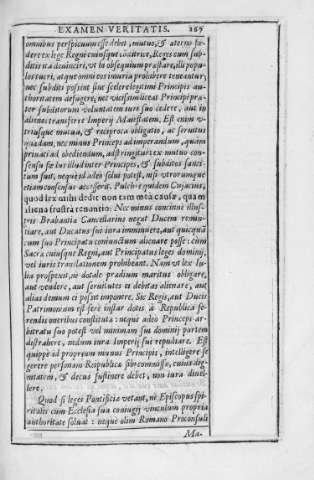 EXAMEN VERITATIS. 267
omnibus perspicuum esse debet, mutuo, & æterno fæ-
dere ex lege Regni cuiusque cõstitui, Reges cum sub-
ditis ita deuinciri, vt in obsequium præstare, illi popu-
los tueri, atque omni eos iniuria prohibere teneantur,
nec subditi possint sine scelere legitimi Principis au-
thoritatem aspergere, nec vicissim liceat Principi præ-
ter subditorum voluntatem iure suo cedere, aut in
alienos transferre Imperij Maiestatem. Est enim v-
triusque mutua, & reciproca obligatio, ac seruitus
quædam, nec minus Princeps ad imperandum, quàm
priuati ad obediendum, adstringitur ex mutuo con-
sensu se
tum sunt, neque id adeo solui potest, nisi vtrorumque
etiam consensus accesserit. Pulchrè quidem Cuiacius,
quod lex mihi dedit non tam mea causa, quàm
aliena frustrà renuntio: Nec minus concinnè illus-
tris Brabantiæ Cancellarius negat Ducem renun-
tiare, aut Ducatus sui iura imminuere, aut quicquã
cum suo Principatu coniunctum alienare posse: cùm
Sacra cuiusque Regni, aut Principatus leges domini,
vel iuris translationem prohibeant. Nam vt lex Iu-
lia prospexit, ne dotale prædium maritus obligare,
aut vendere, aut seruitutes ei debitas alienare, aut
alias demum ei posset imponere. Sic Regis, aut Ducis
Patrimonium est ferè instar dotis à Republica fe-
rendis oneribus constituta: neque adeò Princeps ar-
bitratu suo potest vel minimam sui dominij partem
distrahere, nedum iura Imperij sui repudiare. Est
quippe ad proprium munus Principis, intelligere se
gerere personam Reipublicæ sibi commissæ, cuius dig-
nitatem, & decus sustinere debet, non iura diuel-
lere.
Quod si leges Pontificiæ vetant, nè Episcopus spi-
ritalis cum Ecclesia sua coniugij vinculum propria
authoritate soluat: neque olim Romano Proconsuli
Ma-